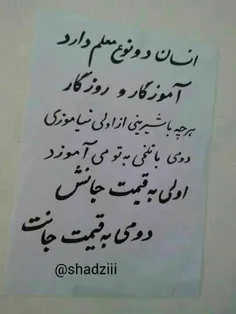 انسان دو نوع معلم دارد
آموزگار و روزگار
هرچه با شیرینی از اولی نیاموزی
دومی با تلخی به تو می آموزد
اولی به قیمت جانش
دومی به قیمت جانت
@shadziii